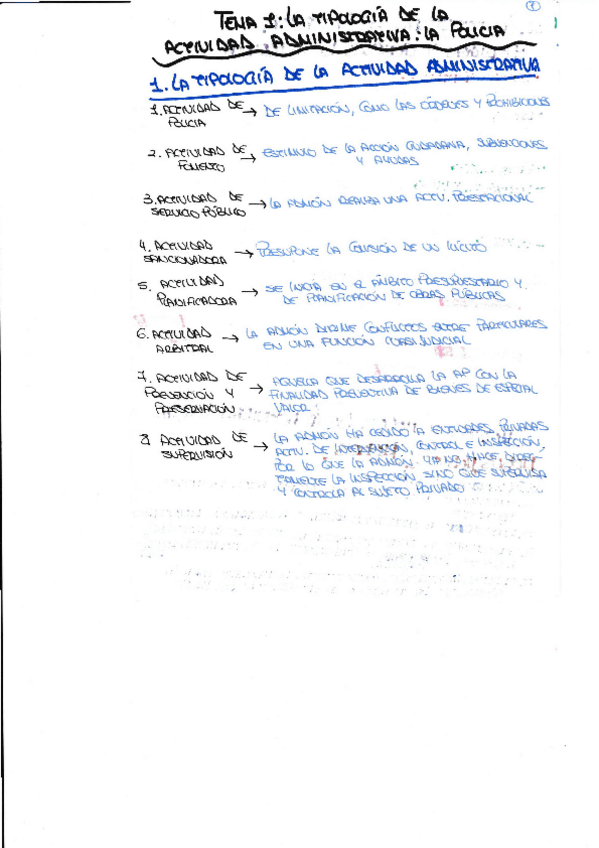 1
TEMA 1: LA TIPOLOGÍA DE LA
ACTIVIDAD ADMINISTRATIVA: LA POLICIA
1. LA TIPOLOGÍA DE LA ACTIVIDAD ADMINISTRATIVA
1. ACTIVIDAD DE POLICIA → DE LIMITACIÓN, COMO LAS ÓRDENES Y PROHIBICIONES
2. ACTIVIDAD DE FOMENTO → ESTIMULO DE LA ACCIÓN CIUDADANA, SUBVENCIONES
Y AYUDAS
3. ACTIVIDAD DE SERVICIO PÚBLICO → LA ADMÓN REALIZA UNA ACTV. PRESTACIONAL
4. ACTIVIDAD SANCIONADORA → PRESUPONE LA COMISIÓN DE UN ILÍCITO
5. ACTIVIDAD PLANIFICADORA → SE INICIA EN EL ÁMBITO PRESUPUESTARIO Y
DE PLANIFICACIÓN DE OBRAS PÚBLICAS
6. ACTIVIDAD ARBITRAL → LA ADMÓN DIRIME CONFLICTOS ENTRE PARTICULARES
EN UNA FUNCIÓN CUASIJUDICIAL
7. ACTIVIDAD DE PREVENCIÓN Y PRESERVACIÓN → AQUELLA QUE DESARROLLA LA AP CON LA
FINALIDAD PREVENTIVA DE BIENES DE ESPECIAL
VALOR
8 ACTIVIDAD DE SUPERVISIÓN → LA ADMÓN HA CEDIDO A ENTIDADES PRIVADAS
ACTV. DE INTERVENCIÓN, CONTROL E INSPECCIÓN,
POR LO QUE LA ADMÓN YA NO HACE DIREC-
TAMENTE LA INSPECCIÓN, SINO QUE SUPERVISA
Y CONTROLA AL SUJETO PRIVADO